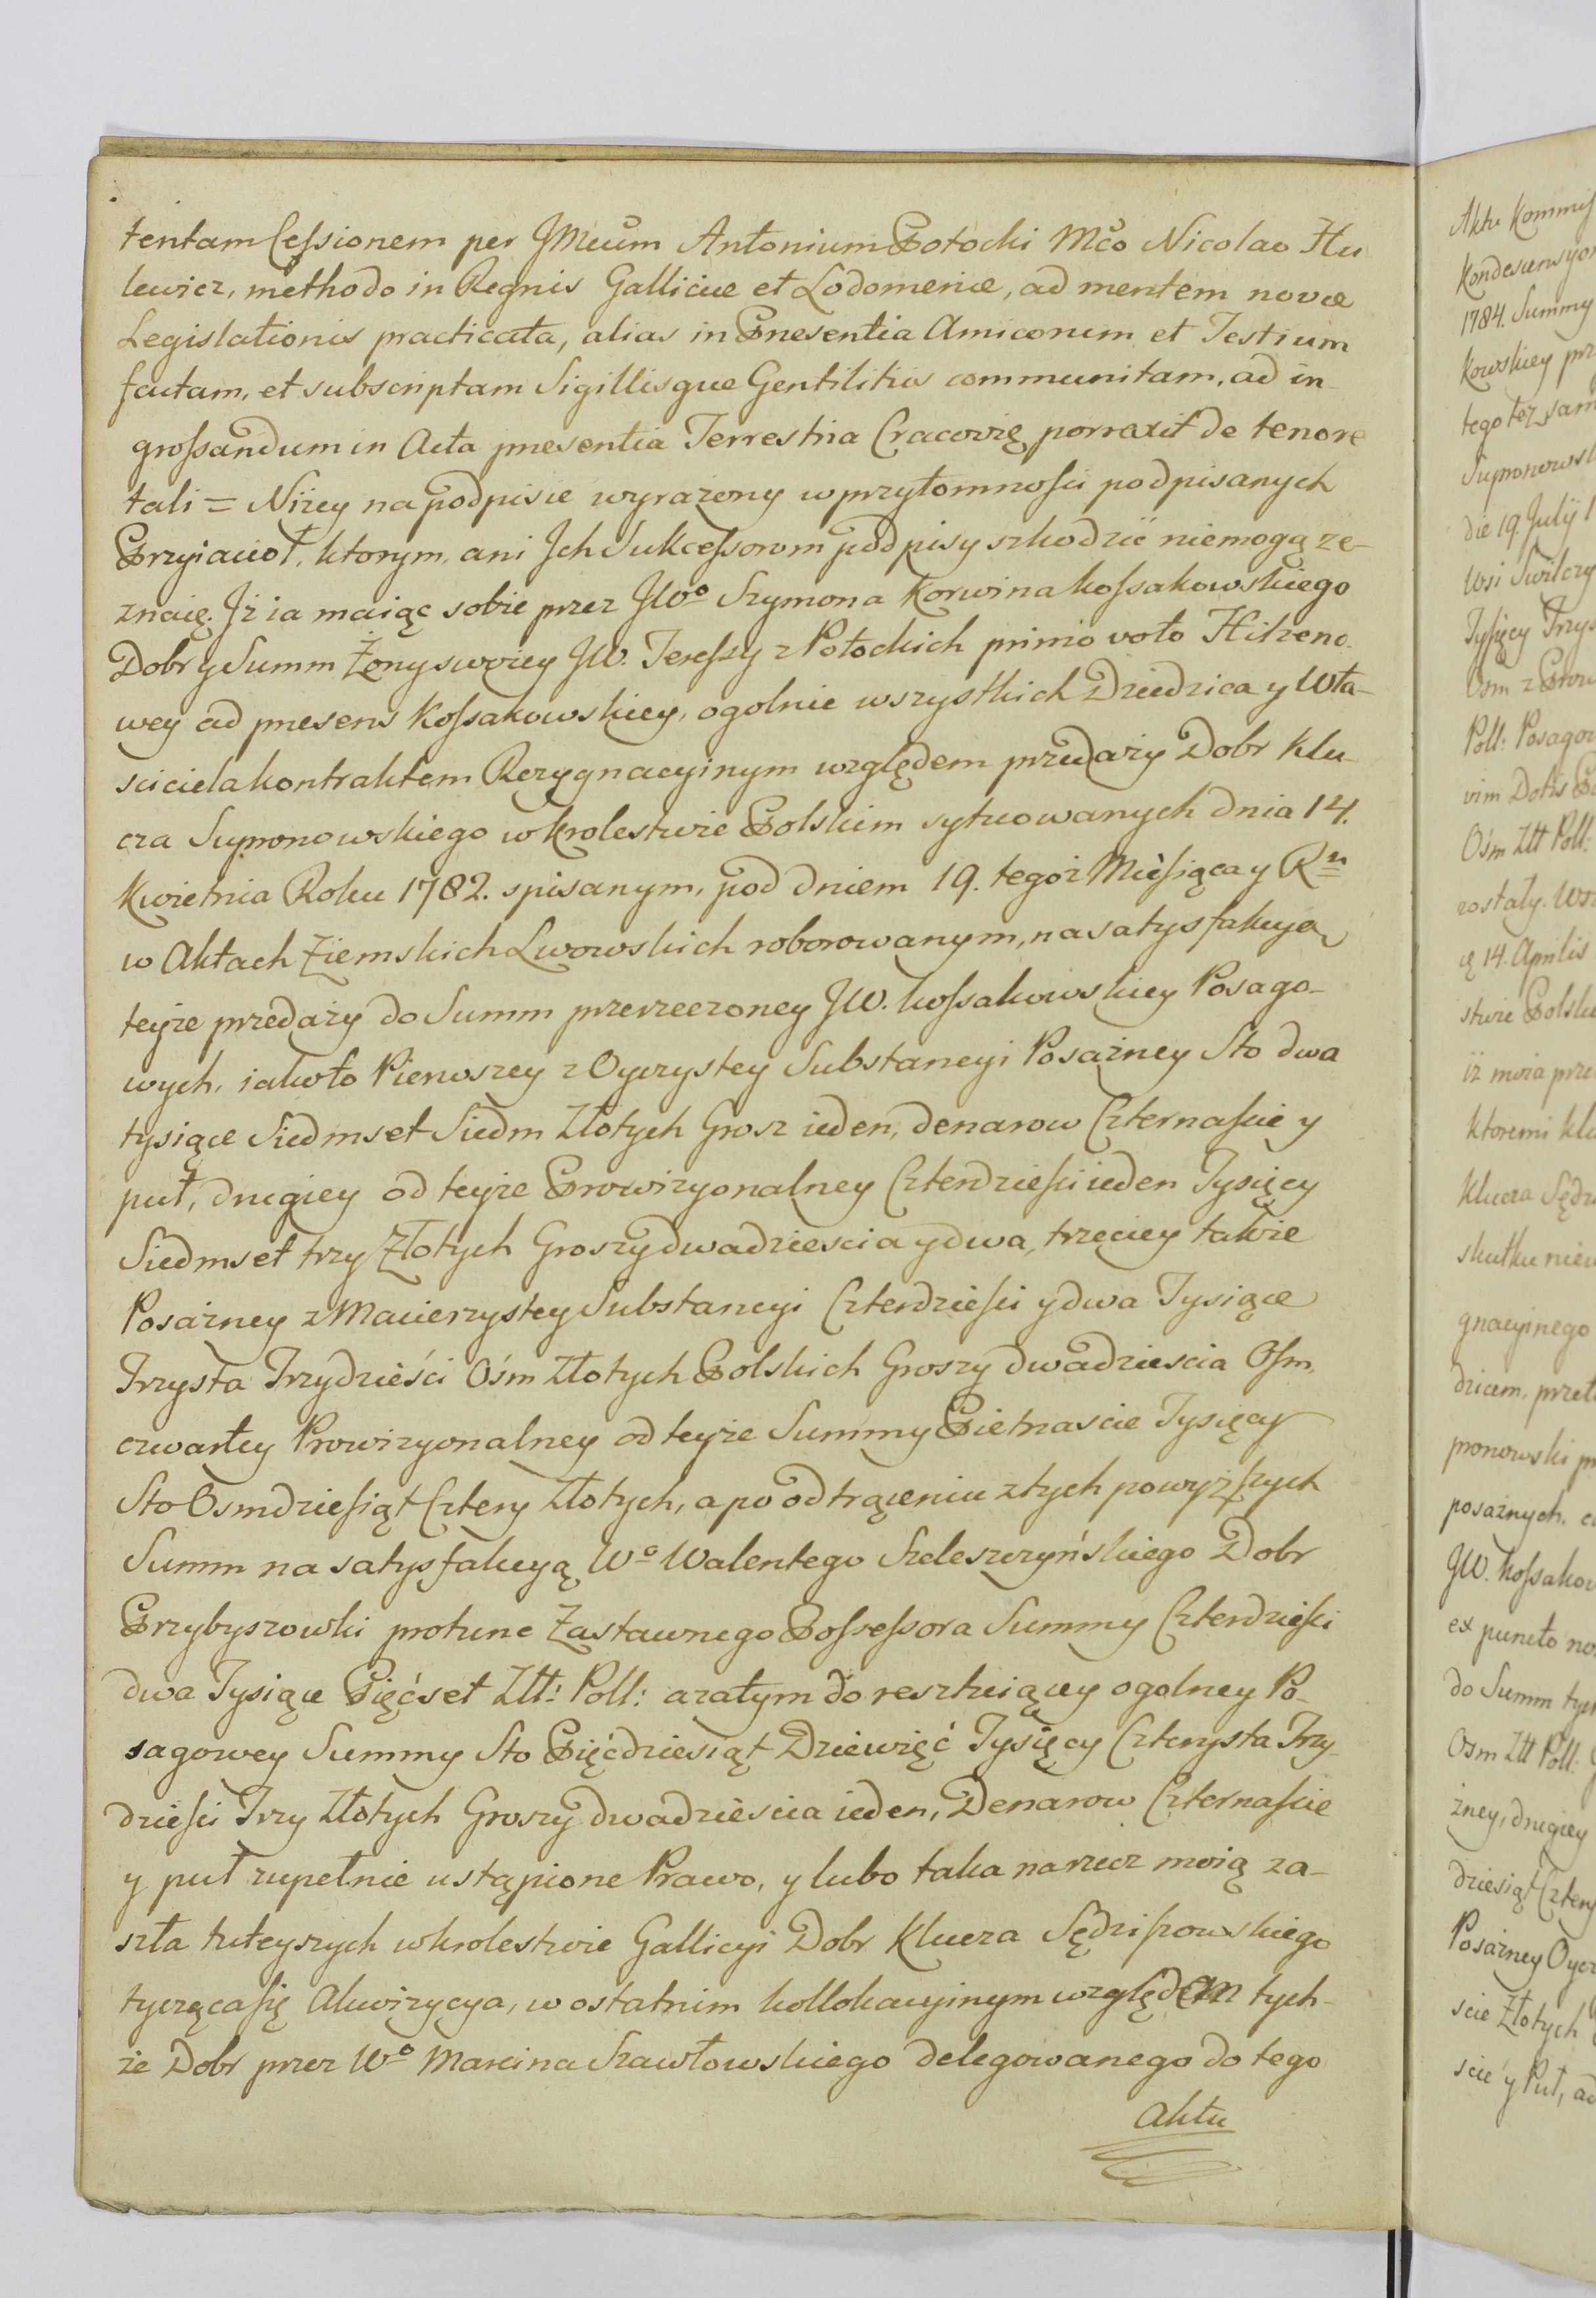 tentam Cessionem per JMcum Antonium Potocki Mco Nicolao Hu
lewicz, methodo in Regnis Galliciæ et Lodomeriæ, ad mentem novæ
Legislationis practicata, alias in Præsentia Amicorum et Testium
factam, et subscriptam Sigillisque Gentilitiis communitam, ad in
grossandum in Acta præsentia Terrestria Cracoviæ porrexit de tenore
tali = Niżey na podpisie wyrażony w przytomności podpisanych
Przyiacioł, ktorym, ani Ich Sukcessorom podpisy szkodzić niemogą ze-
znaię. Iż ia maiąc sobie przez JWo Szymona Korwina Kossakowskiego
Dobr y Summ Żony swoiey JW. Teressy z Potockich primo voto Hilzeno-
wey ad præsens Kossakowskiey, ogolnie wszystkich Dziedzica y Wła-
sciciela kontraktem Rezygnacyinym względem przedaży Dobr Klu-
cza Suponowskiego w krolestwie Polskim sytuowanych dnia 14.
Kwietnia Roku 1782. spisanym, pod dniem 19. tegoż Miesiąca y Ru
w Aktach Ziemskich Lwowskich roborowanym, na satysfakcyą
teyże przedaży do Summ przerzeczoney JW. Kossakowskiey Posago-
wych, iakoto Pierwszey z Oyczystey Substancyi Posażney Sto dwa
tysiące Siedmset Siedm Złotych Grosz ieden, denarow Czternaście y
puł, drugiey od teyże Prowizyonalney Czterdzieści ieden Tysięcy
Siedmset trzy Złotych Groszy dwadziescia y dwa, trzeciey także
Posażney z Macierzystey Substancyi Czterdzieści y dwa Tysiące
Trzysta Trzydzieści Ośm Złotych Polskich Groszy dwadziescia Osm,
czwartey Prowizyonalney od teyże Summy Pietnascie Tysięcy
Sto Osmdziesiąt Cztery Złotych, a po odtrąceniu z tych powyższych
Summ na satysfakcyą Wo Walentego Szeleszczyńskiego Dobr
Przybyszowki protunc Zastawnego Possessora Summy Czterdzieści
dwa Tysiące Pięćset Złł: Poll: azatym do resztuiącey ogolney Po-
sagowey Summy Sto Pięćdziesiąt Dziewięć Tysięcy Czterysta Trzy-
dzieści Trzy Złotych Groszy dwadziescia ieden, Denarow Czternaście
y puł zupełnie ustąpione Prawo, y lubo taka na rzecz moią za-
szła tuteyszych w krolestwie Gallicyi Dobr Klucza Sędziszowskiego
tycząca się Akwizycya, w ostatnim kollokacyinym względem tych-
że Dobr przez Wo Marcina Szawłowskiego delegowanego do tego
Aktu
Aktu
1784. Summy
kowskiey
tego też
die 19. July
Poll:
Ośm Złł Poll:
zostały.
14. Aprilis
iż moia
ktoremi
klucza
skutku
gnacyinego
dzicem,
ponowski
posażnych,
JW.
ex puncto
do Summ
Osm Złł Poll:
żney, drugiey
dziesiąt Cztery
Posażney
scie Złotych
scie y Puł,